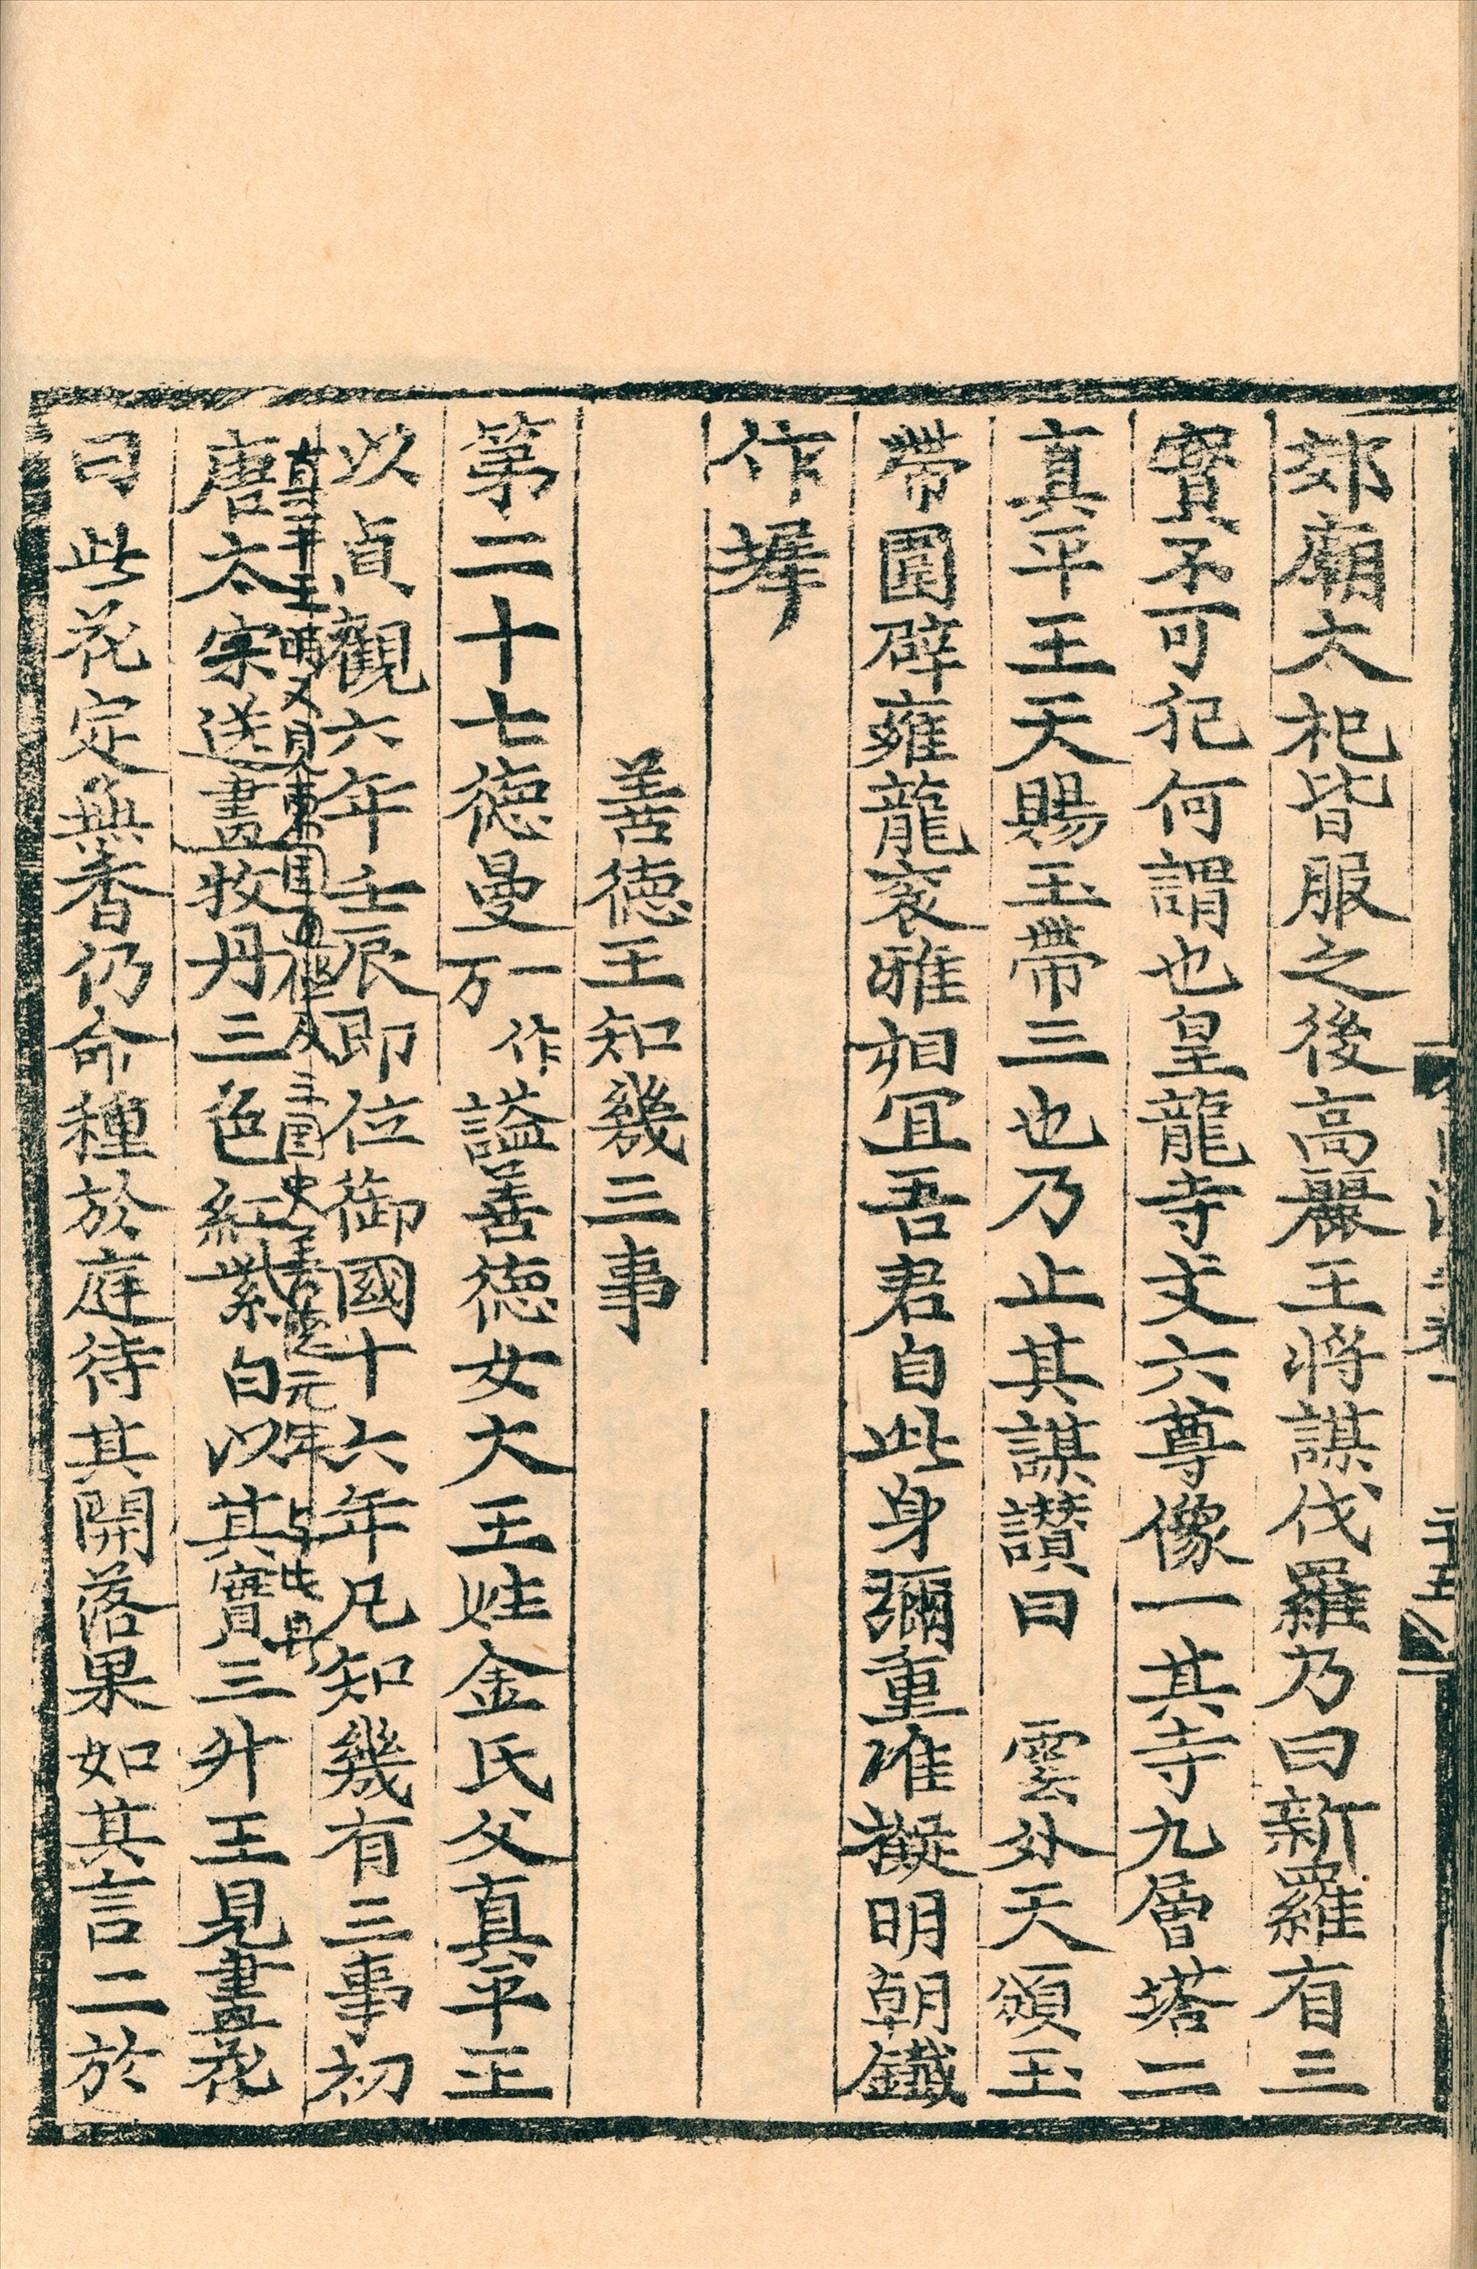 郊廟大祀皆服之後高麗王將謀伐羅乃曰新羅有三
寶不可犯何謂也皇龍寺丈六尊像一其寺九層塔二
真平王天賜玉帶三也乃止其謀讃曰 雲外天頒玉
帶圍辟雍龍衮雅相宜吾君自此身彌重准擬明朝鐵
作墀
善德王知幾三事
第二十七德曼一作万謚善德女大王姓金氏父真平王
以貞觀六年壬辰即位御國十六年凡知幾有三事初
真平王時又見東国 三国史善德元年
唐太宗送畫牧丹三色紅紫白以其實三升王見畫花
曰此花定無香仍命種於庭待其開落果如其言二於